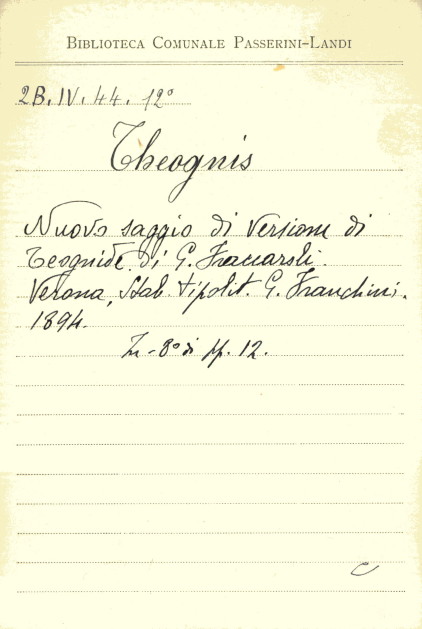 BIBLIOTECA COMUNALE PASSERINI-LANDI
2B.IV.44. 12°
Theognis
Nuovo saggio di versione di
Teognide di G. Fraccaroli.
Verona, Stab. tipolit. G. Franchini.
1894.
In-8° di pp. 12.
C